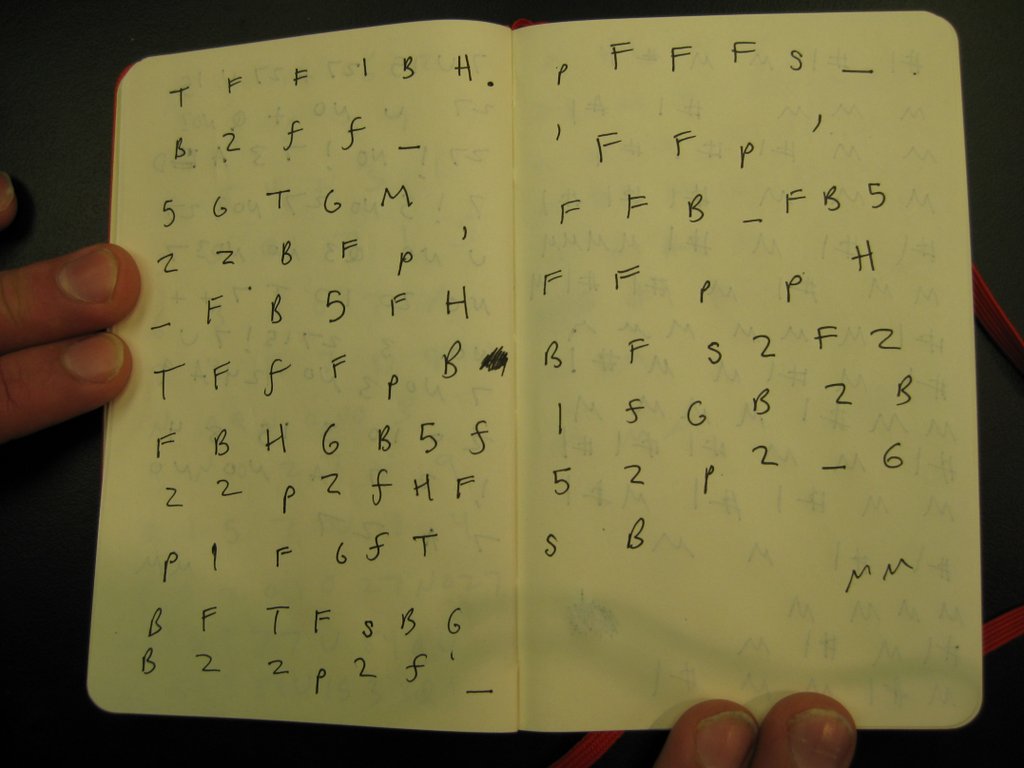 T F F 1 B H.
B 2 f f _
5 G T G M
2 2 B F p '
_ F B 5 F H
T F f F p B
F B H G B 5 f
2 2 p 2 f H F
p 1 F 6 f T
B F T F s B G
B 2 2 p 2 f ' _
p F F F s _ .
' F F p '
F F B _ F B 5
F F p p H
B F s 2 F 2
1 f G B 2 B
5 2 p 2 _ 6
s B